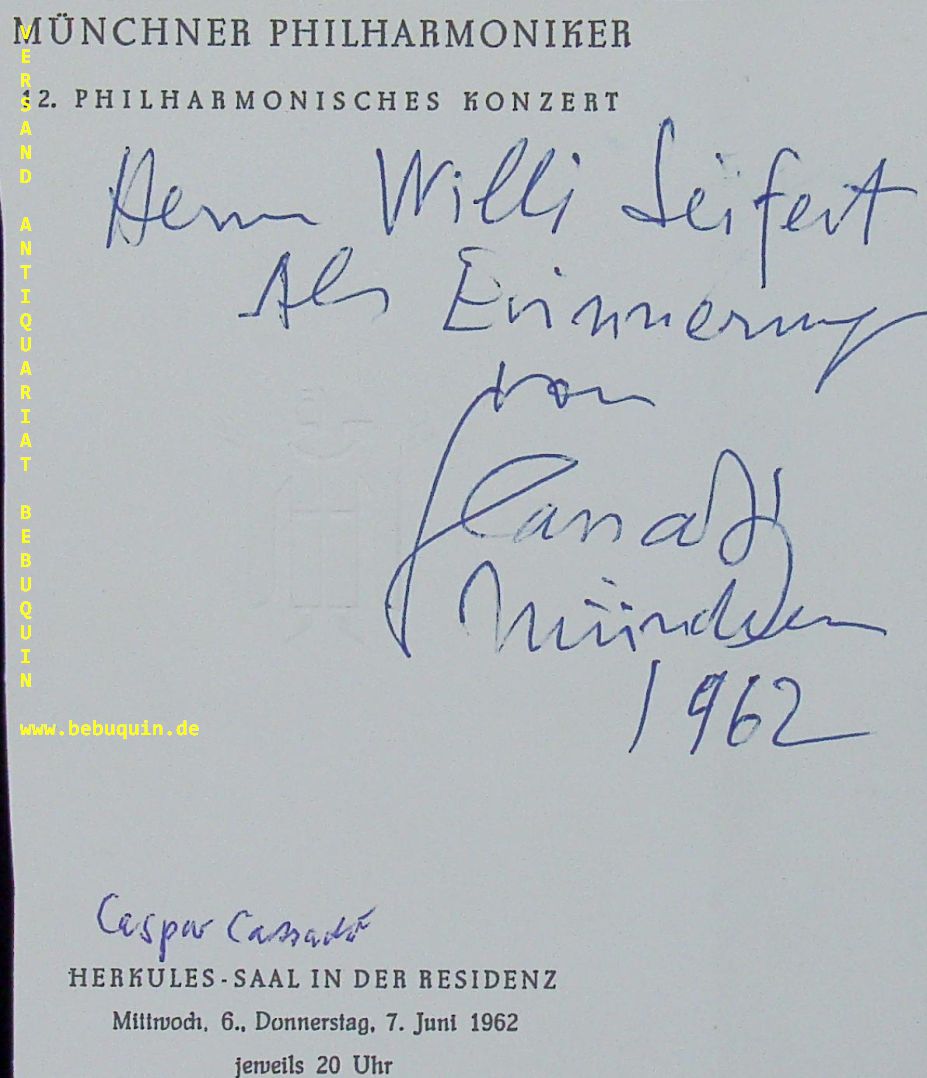 MÜNCHNER PHILHARMONIKER
12. PHILHARMONISCHES KONZERT
Herrn Willi Seifert
Als Erinnerung
von
Cassadó
München
1962
Caspar Cassadó
HERKULES-SAAL IN DER RESIDENZ
Mittwoch, 6., Donnerstag, 7. Juni 1962
jeweils 20 Uhr
VERSAND ANTIQUARIAT BEBUQUIN
www.bebuquin.de